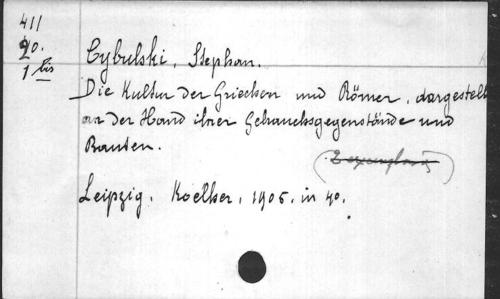 411
20.
1 bis
Cybulski, Stephan.
Die Kultur der Griechen und Römer, dargestellt
an der Hand ihrer Gebrauchsgegenstände und
Bauten.
(2 exemplare)
Leipzig. Koelher, 1905. in 4o.